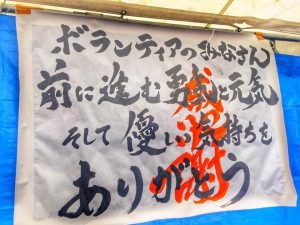 ボランティアのみなさん
前に進む勇気と元気
そして優しい気持ちを
ありがとう
感謝